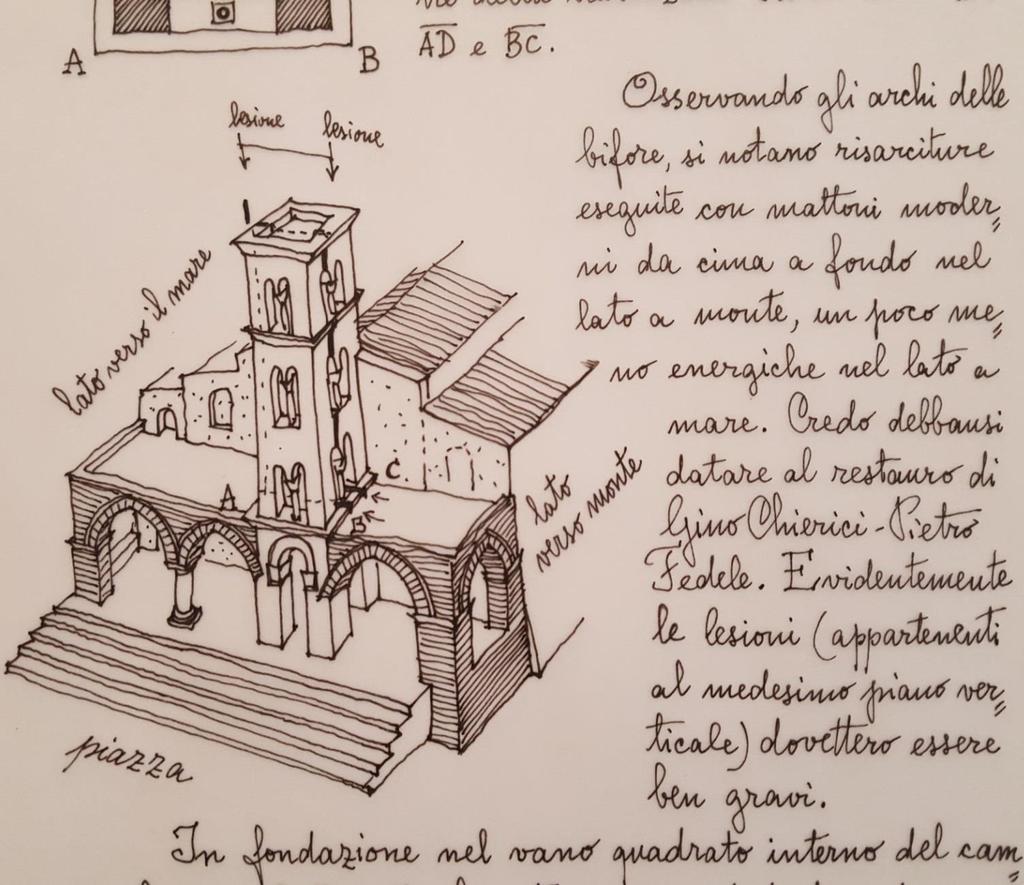 A
B
AD e BC.
lesione
lesione
lato verso il mare
lato
verso monte
A
B
C
piazza
Osservando gli archi delle
bifore, si notano risarciture
eseguite con mattoni moder=
ni da cima a fondo nel
lato a monte, un poco me=
no energiche nel lato a
mare. Credo debbansi
datare al restauro di
Gino Chierici-Pietro
Fedele. Evidentemente
le lesioni (appartenenti
al medesimo piano ver=
ticale) dovettero essere
ben gravi.
In fondazione nel vano quadrato interno del cam=